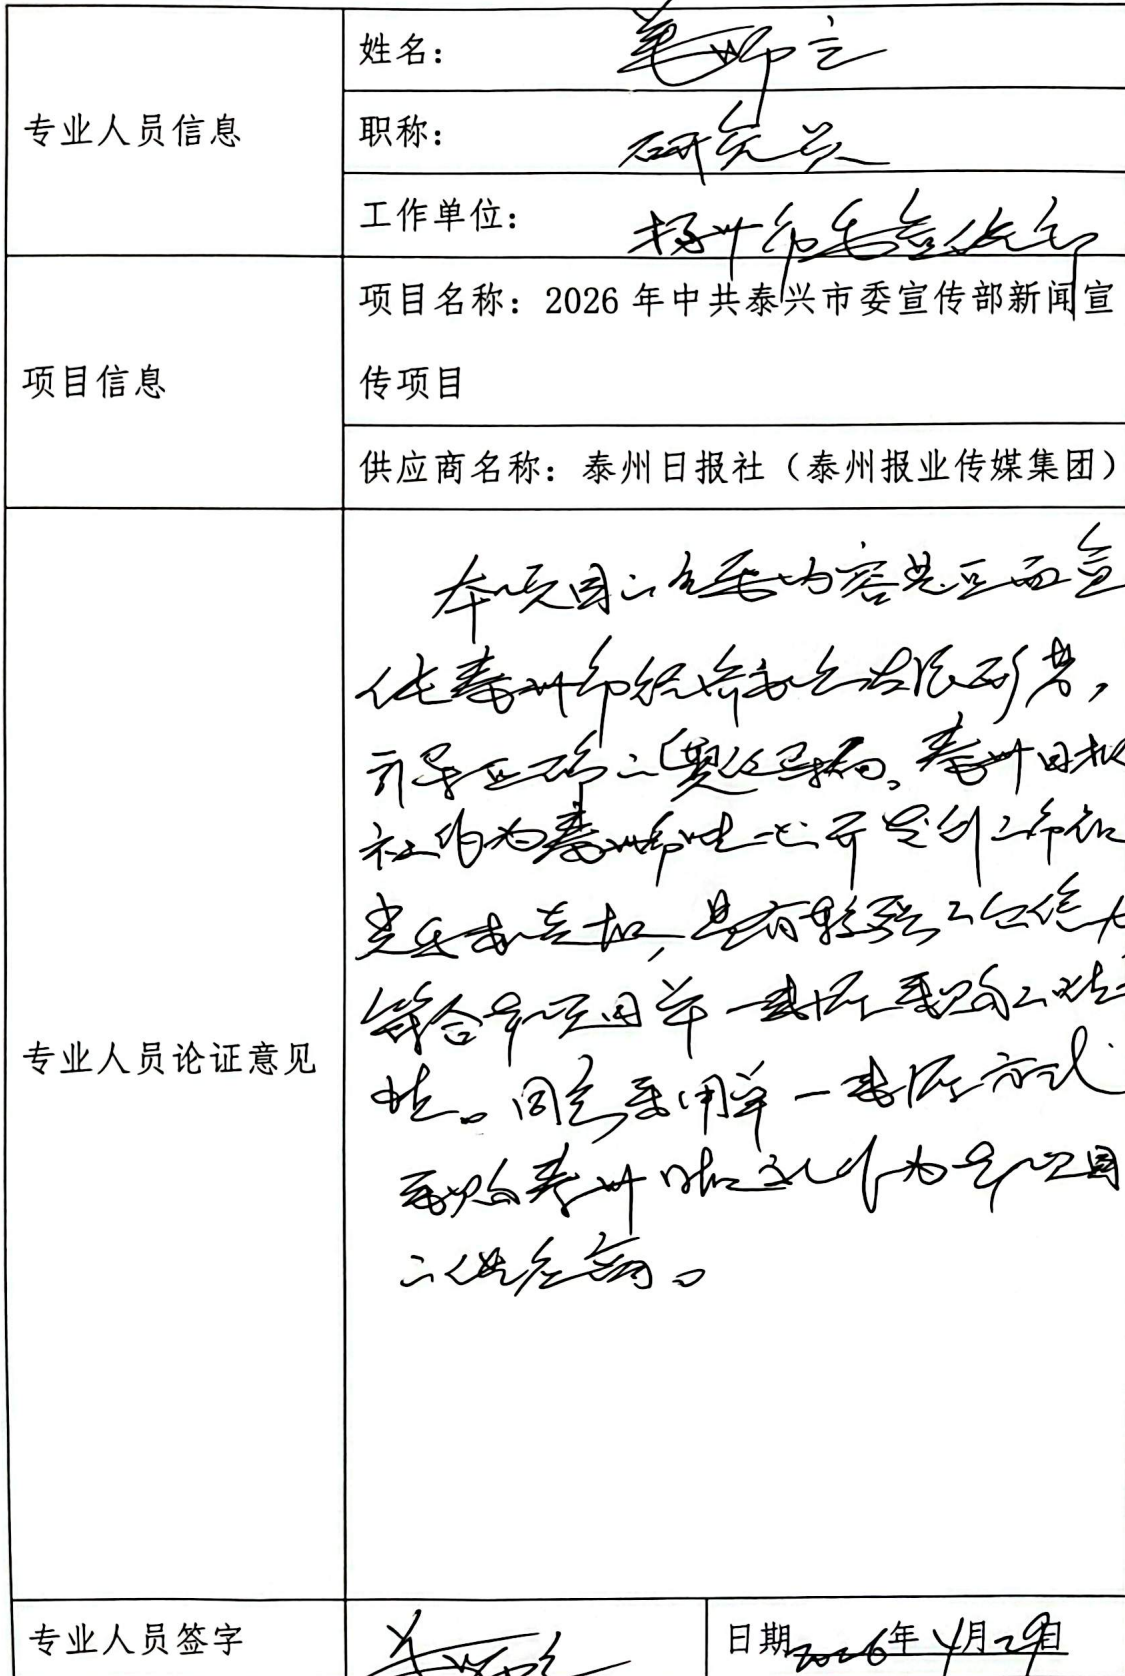 姓名：
专业人员信息
职称： 研究员
工作单位： 扬州市委宣传部
项目名称：2026年中共泰兴市委宣传部新闻宣
项目信息
传项目
供应商名称：泰州日报社（泰州报业传媒集团）
本项目的主要内容是正面宣
传泰州市经济社会发展形势，
引导正确的舆论导向。泰州日报
社作为泰州市唯一公开发刊的市级
党委机关报，具有较强的公信力
符合本项目单一来源采购的
性。同意采用单一来源方式
专业人员论证意见
采购泰州日报社作为本项目
的供应商。
专业人员签字
日期 2026年4月29日